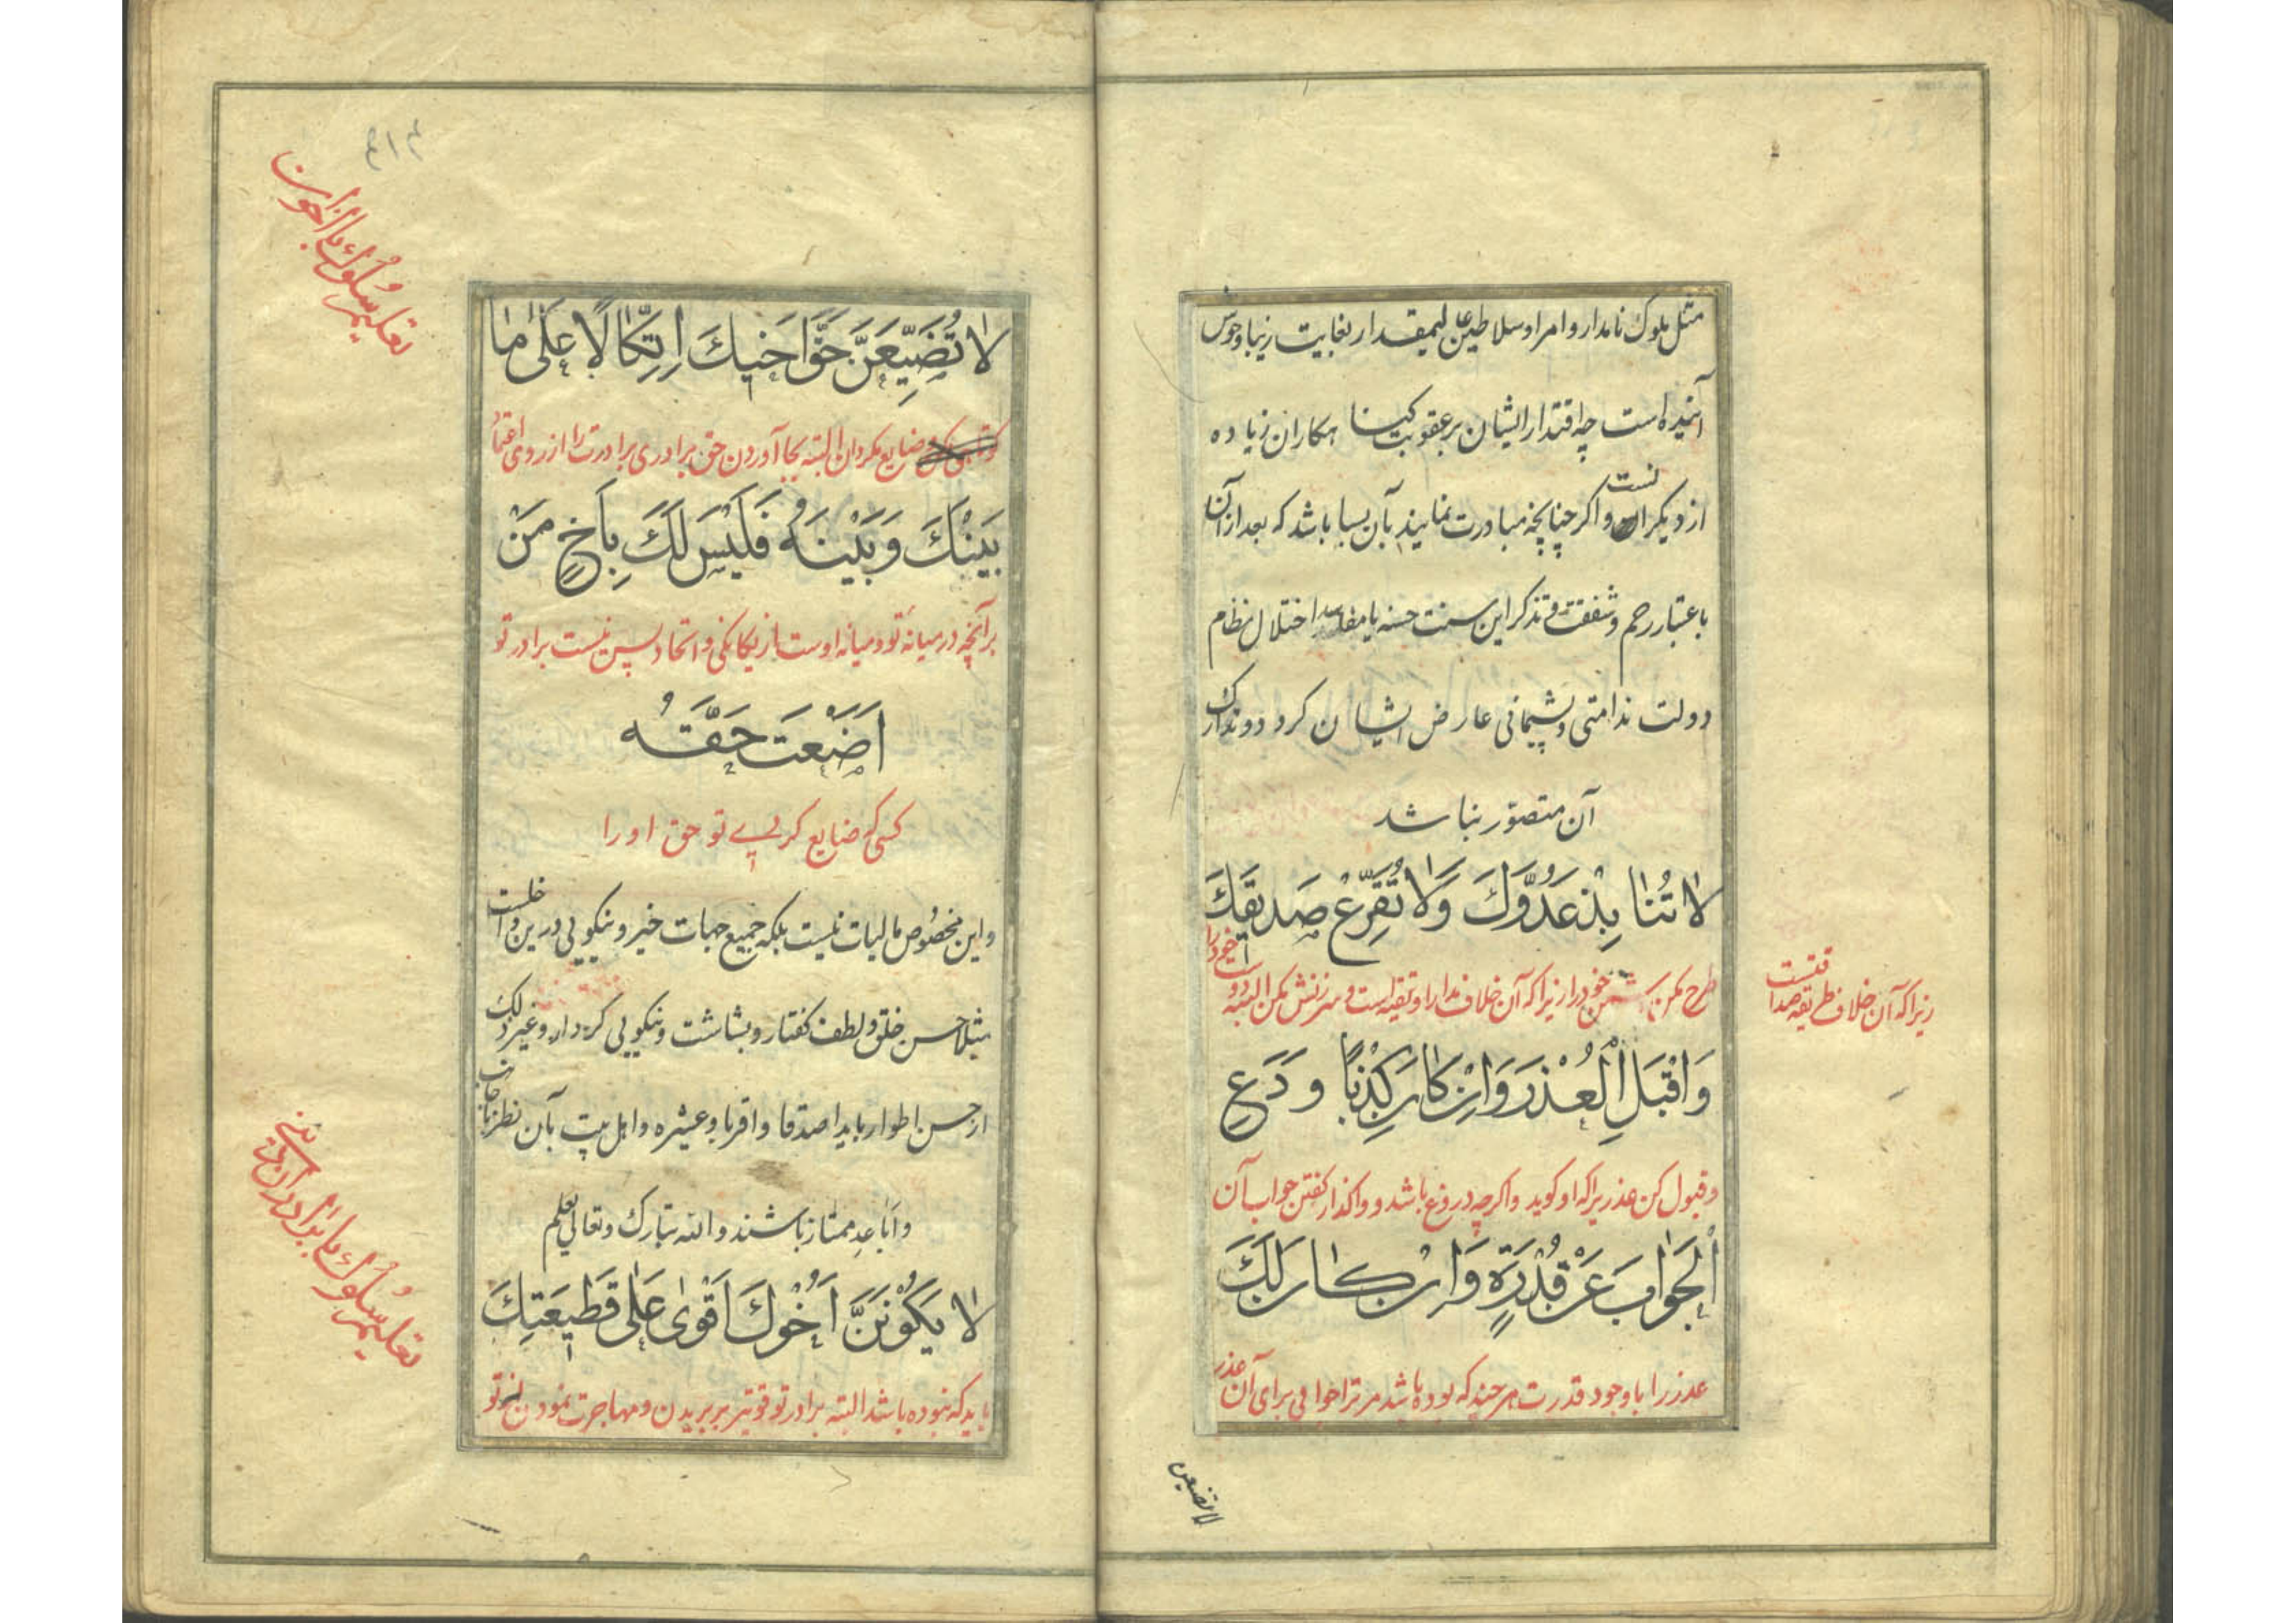 مثل ملوک نامدار و امرا و سلاطین عالیمقدار بغایت زیبا و خوش
آینده است چه اقتدار ایشان بر عقوبت کناهکاران زیاده
از دیکرانست و اکر چنانچه مبادرت نمایند بآن بسا باشد که بعد از آن
باعتبار رحم و شفقت و تذکر این سنت حسنه یا مفاسد اختلال نظام
دولت ندامتی و پشیمانی عارض ایشان کردد و تدارک
آن متصوّر نباشد
لَا تُنَابِذْ عَدُوَّكَ وَلَا تُقَرِّعْ صَدِيقَكَ
طرح مکن دشمن خود را زیرا که آن خلاف مدارا و تقیه است و سرزنش مکن البته دوست خود را
زیرا که آن خلاف طریقه صداقتست
وَاقْبَلِ الْعُذْرَ وَإِنْ كَانَ كَذِبًا وَدَعِ
و قبول کن عذریرا که او کوید و اکرچه دروغ باشد و واکذار کفتن جواب آن
الْجَوَابَ عَنْ قُدْرَةٍ وَإِنْ كَانَ لَكَ
عذر را با وجود قدرت هر چند که بوده باشد مر ترا جوابی برای آن عذر
لا تضیعن
تعلیم سلوك با اخوان
لَا تُضَيِّعَنَّ حَقَّ أَخِيكَ اِتِّكَالًا عَلَى مَا
ضایع مکردان البته بجا آوردن حق برادری برادرت را از روی اعتماد
بَيْنَكَ وَبَيْنَهُ فَلَيْسَ لَكَ بِأَخٍ مَنْ
برآنچه در میانه تو و میانه اوست از یکانکی و اتحاد پس نیست برادر تو
أَضَعْتَ حَقَّهُ
کسی که ضایع کردی تو حق او را
و این مخصوص مالیات نیست بلکه جمیع جهات خیر و نیکویی درین داخلست
مثلا حسن خلق و لطف کفتار و بشاشت و نیکویی کردار و غیر ذلک
از حسن اطوار باید اصدقا و اقربا و عشیره و اهل بیت بآن نظر باجانب
و اباعد ممتاز باشند و الله تبارك و تعالی یعلم
تعلیم سلوك با برادران دینی
لَا يَكُونَنَّ أَخُوكَ أَقْوَى عَلَى قَطِيعَتِكَ
باید که نبوده باشد البته برادر تو قویتر بر بریدن و مهاجرت نمودن از تو